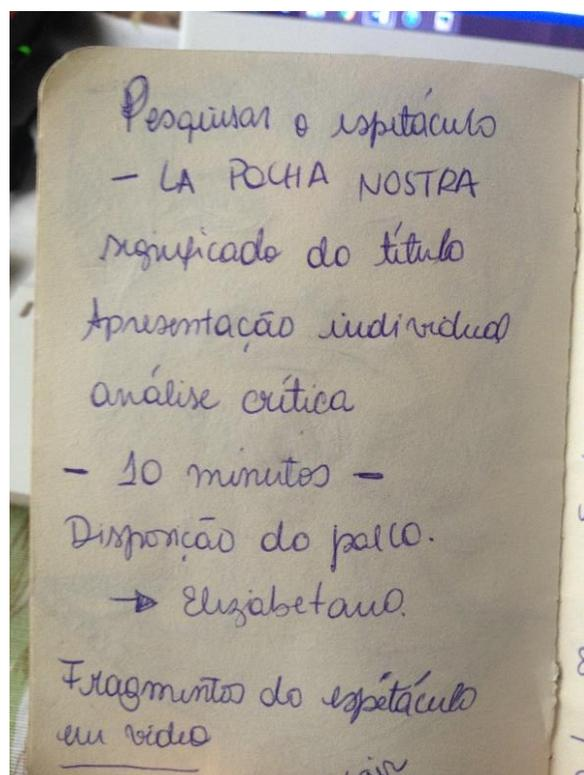 Pesquisar o espetáculo
- LA POCHA NOSTRA
significado do título
Apresentação individual
análise crítica
- 10 minutos -
Disposição do palco.
→ Elizabetano.
Fragmentos do espetáculo
em vídeo